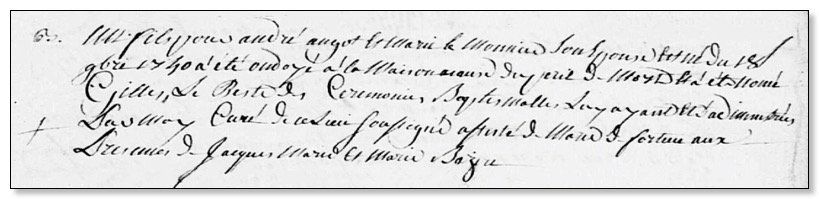 un fils pour andré angot et Marie le Monnier son Epouse est né du 18
9bre 1740 a été ondoyé a la Maison a cause du peril de Mort et a été nomé
Gilles, Le Reste des Ceremonies Baptismalles Luy ayant été administrées
Par Moy Curé de ce Lieu soussigné assisté de Marie de fortune aux
Presences de Jacques Marie et Marie